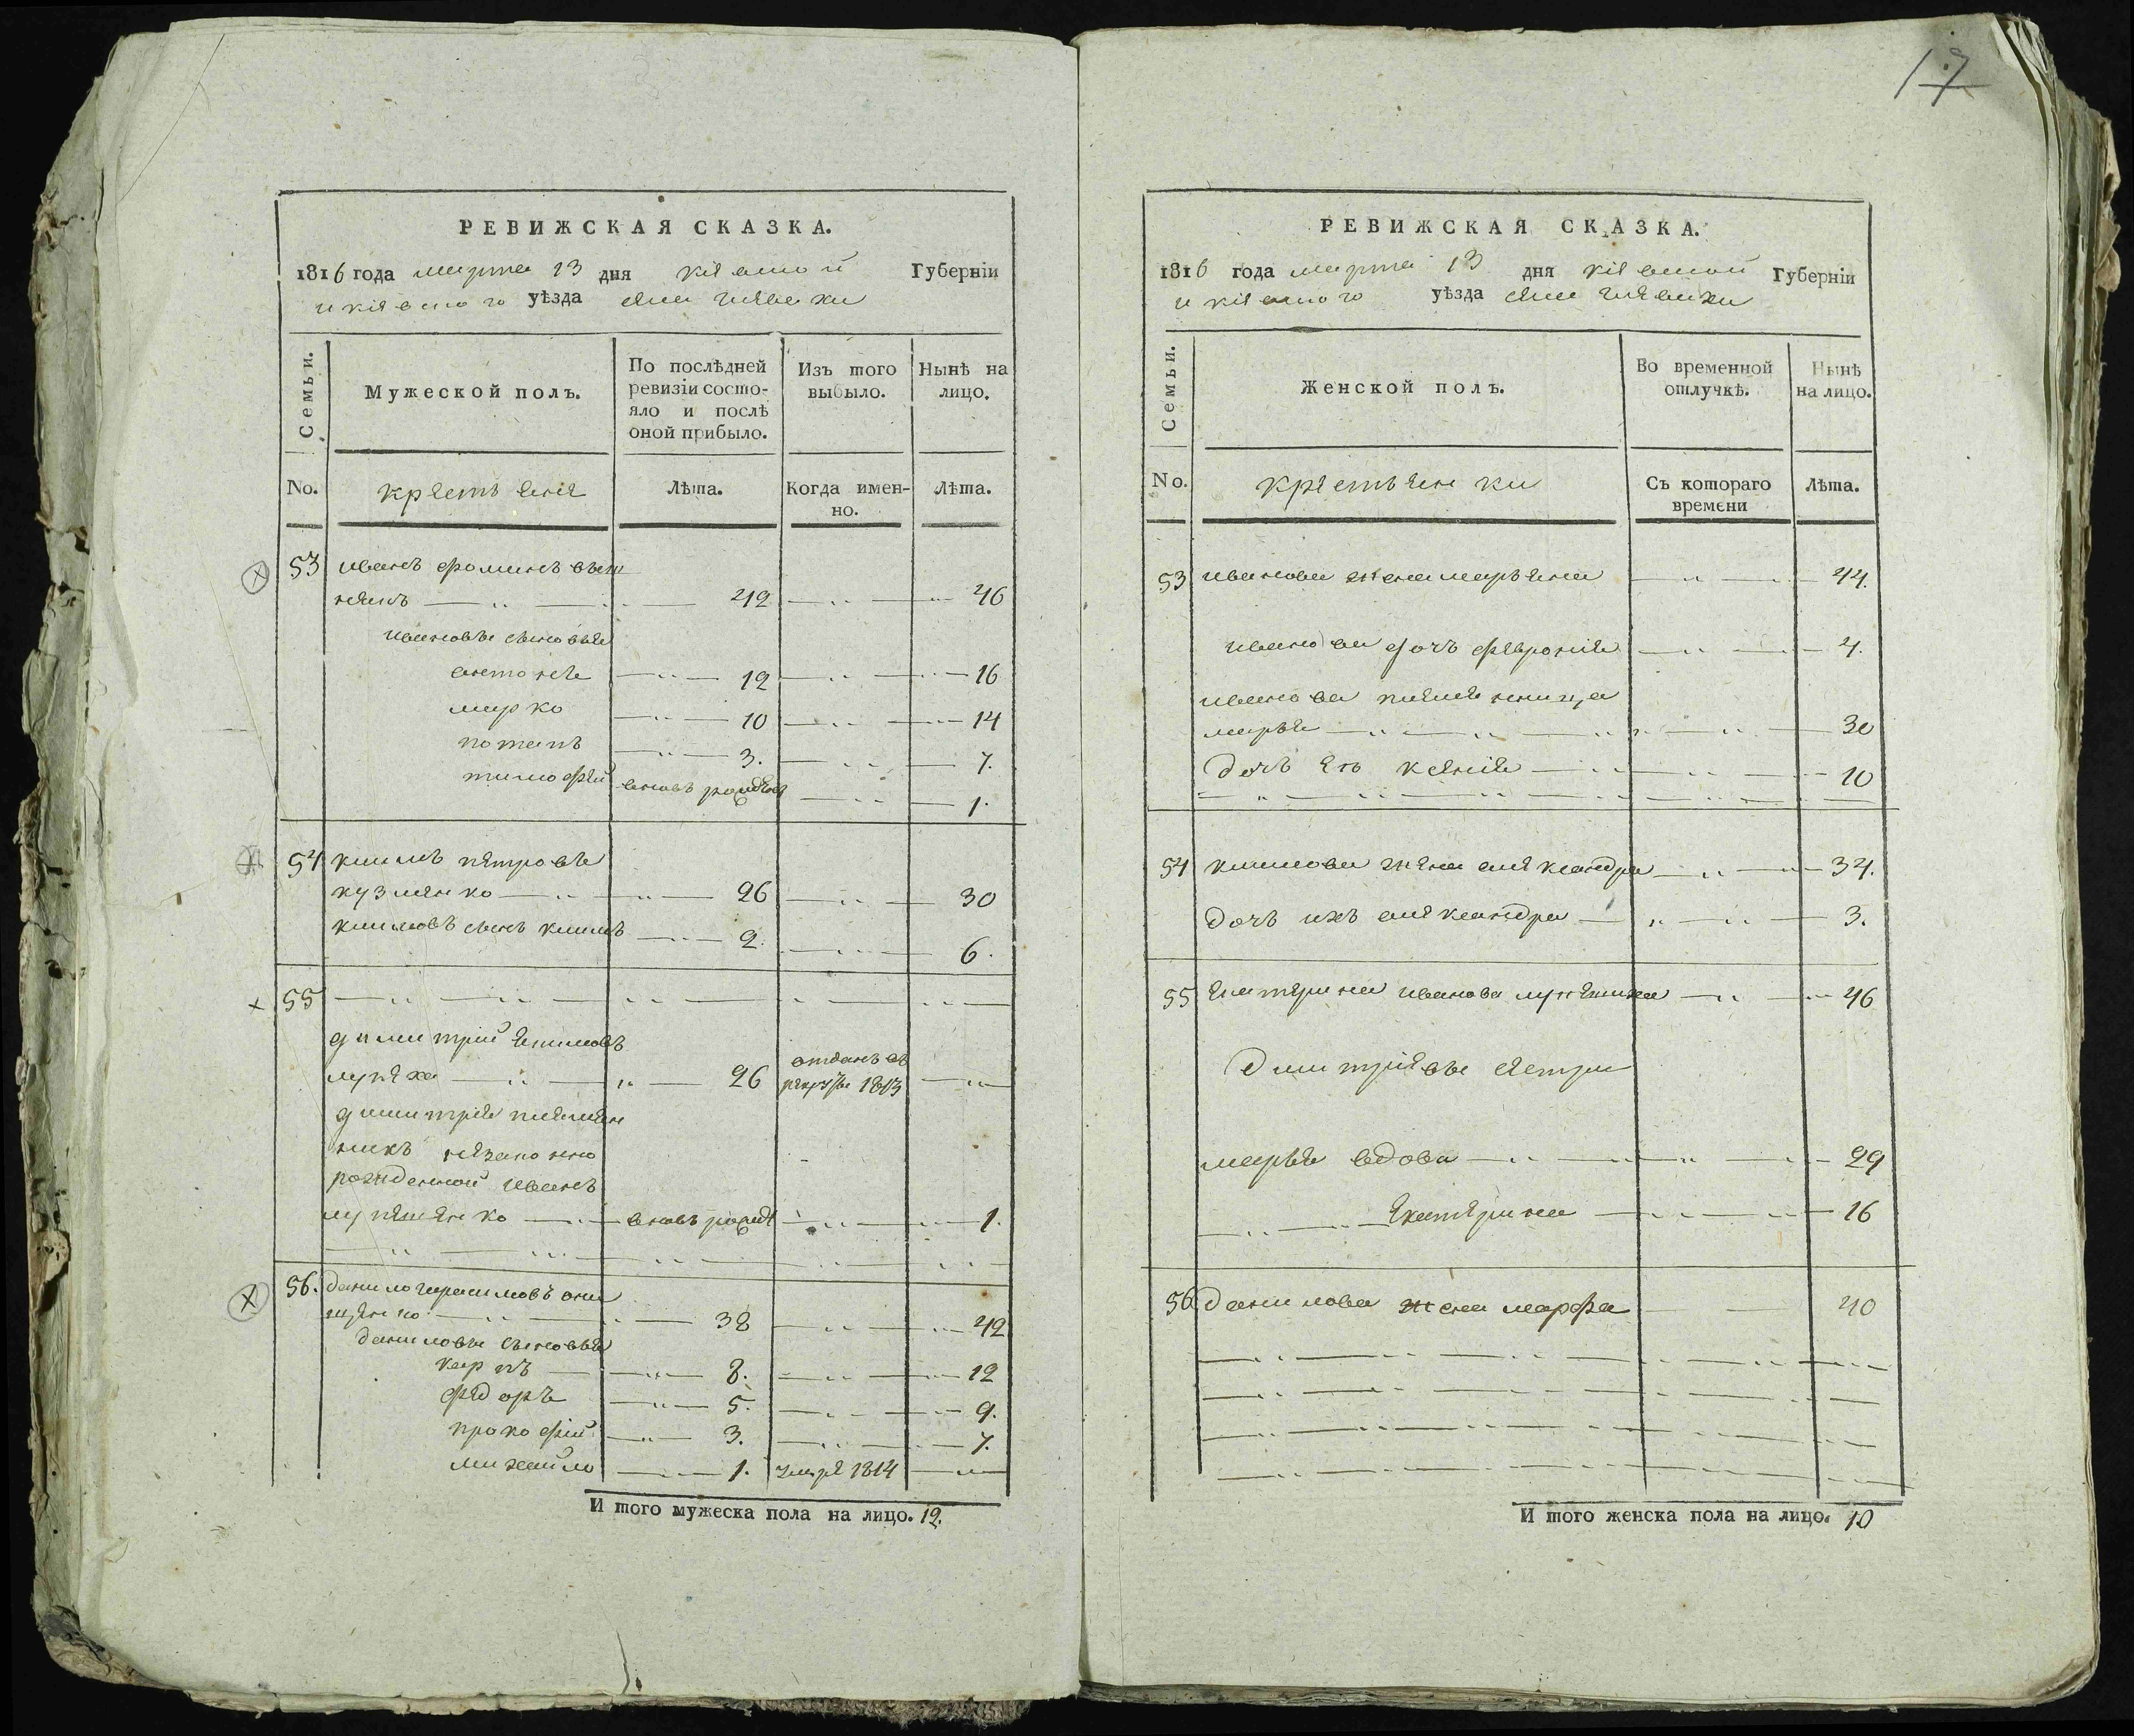 17
РЕВИЖСКАЯ СКАЗКА.
1816 года марта 13 дня кіевской Губерніи
и кіевского уѣзда села
Семьи.
Мужеской полъ.
По послѣдней ревизіи состо-
яло и послѣ
оной прибыло.
Изъ того
выбыло.
Нынѣ на
лицо.
No.
крестьяне
Лѣта.
Когда имен-
но.
Лѣта.
53 иванъ фоминъ
42 46
ивановы сыновья
антонъ 12 16
марко 10 14
потапъ 3. 7.
тимофей вновь рожденъ 1.
54 климъ петровъ
кузменко 26 30
климовъ сынъ климъ 2. 6.
55
димитрий екимовъ
лупеха 26 отданъ въ
рекруты 1813
димитрия племен
никъ незаконно
рожденной иванъ
лупешенко вновь рожде 1.
56. данило герасимовъ они
щенко 38 42
даниловы сыновья
карпъ 8. 12
федоръ 5. 9.
прокофий 3. 7.
михайло 1. умре 1814
И того мужеска пола на лицо. 12.
РЕВИЖСКАЯ СКАЗКА.
1816 года марта 13 дня кіевской Губерніи
и кіевского уѣзда села
Семьи.
Женской полъ.
Во временной
отлучкѣ.
Нынѣ
на лицо.
No.
крестьянки
Съ котораго
времени
Лѣта.
53 иванова жена марьяна 44.
иванова дочь февронія 4.
иванова племенница
марья 30
дочь ея ксенія 10
54 климова жена александра 34.
дочь ихъ александра 3.
55 екатерина иванова лупешиха 46
Дмитріевы сестри
марья вдова 29
екатерина 16
56 данилова жена марфа 40
И того женска пола на лицо. 10